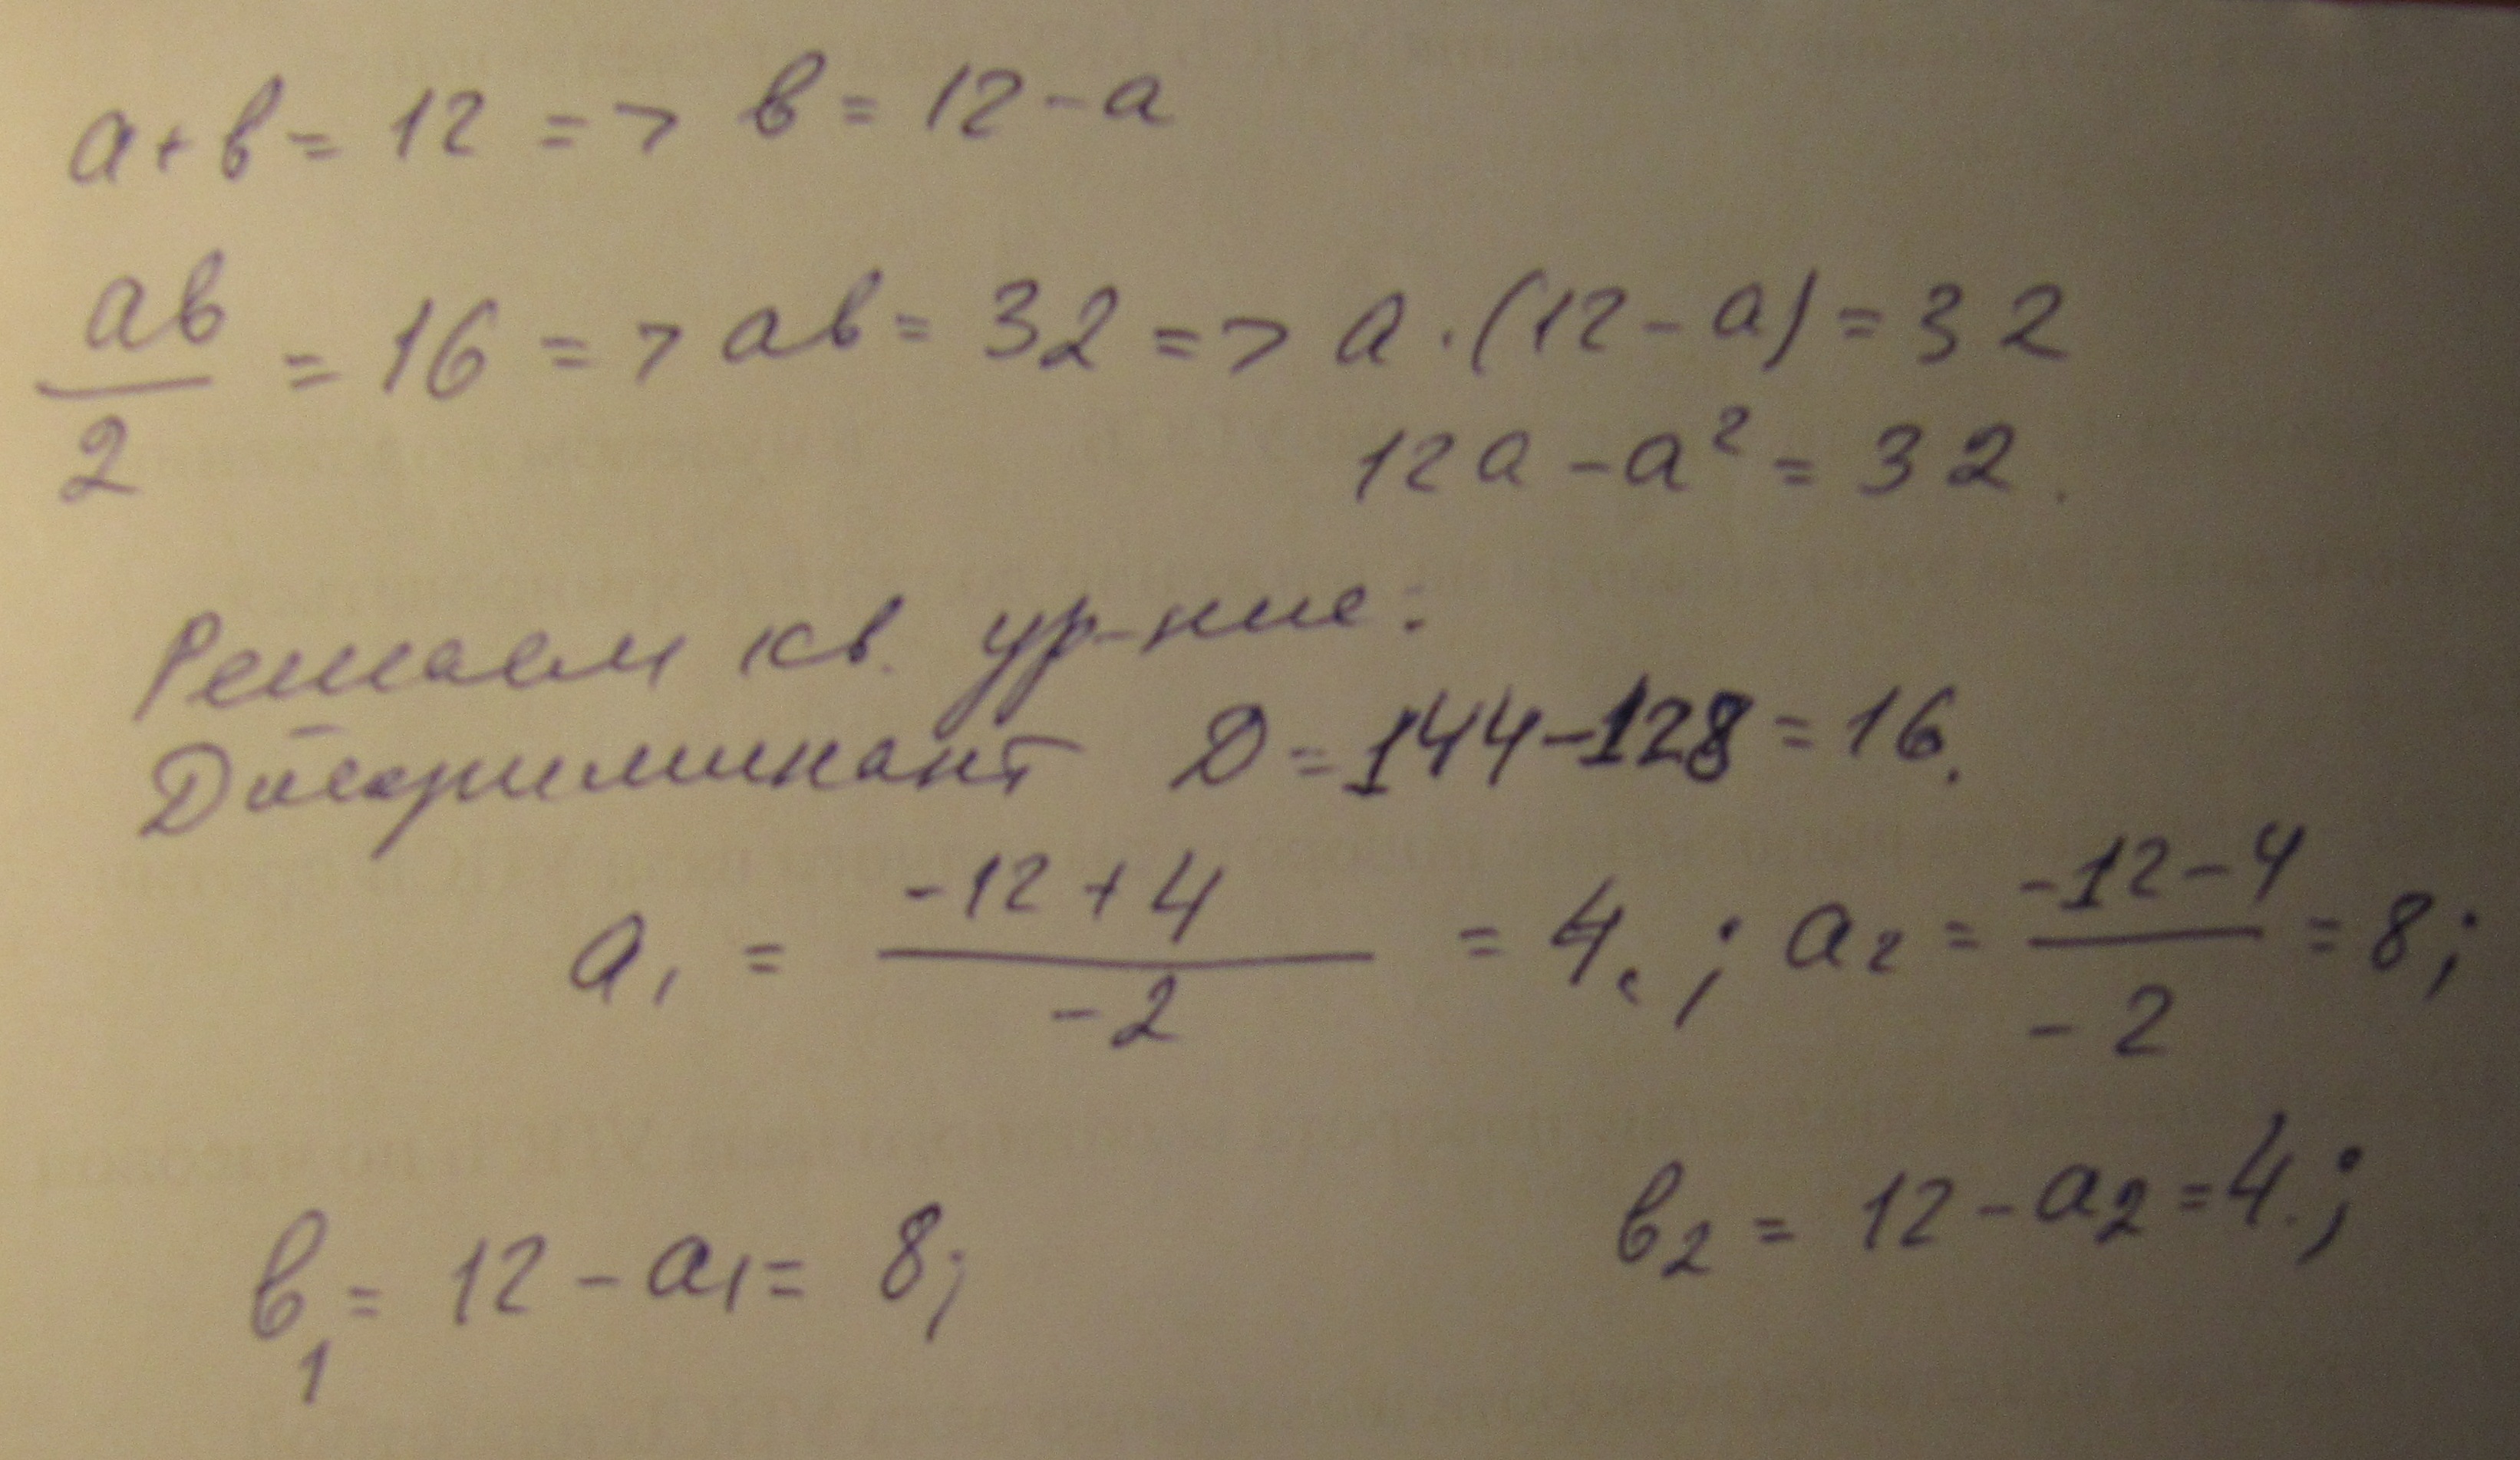 а+в = 12 => в = 12 - а
ав/2 = 16 => ав = 32 => а · (12 - а) = 32
12а - а² = 32.
Решаем кв. ур-ние:
Дискриминант D = 144-128 = 16.
а₁ = (-12 + 4)/(-2) = 4.; а₂ = (-12 - 4)/(-2) = 8;
в₁ = 12 - а₁ = 8; в₂ = 12 - а₂ = 4.;